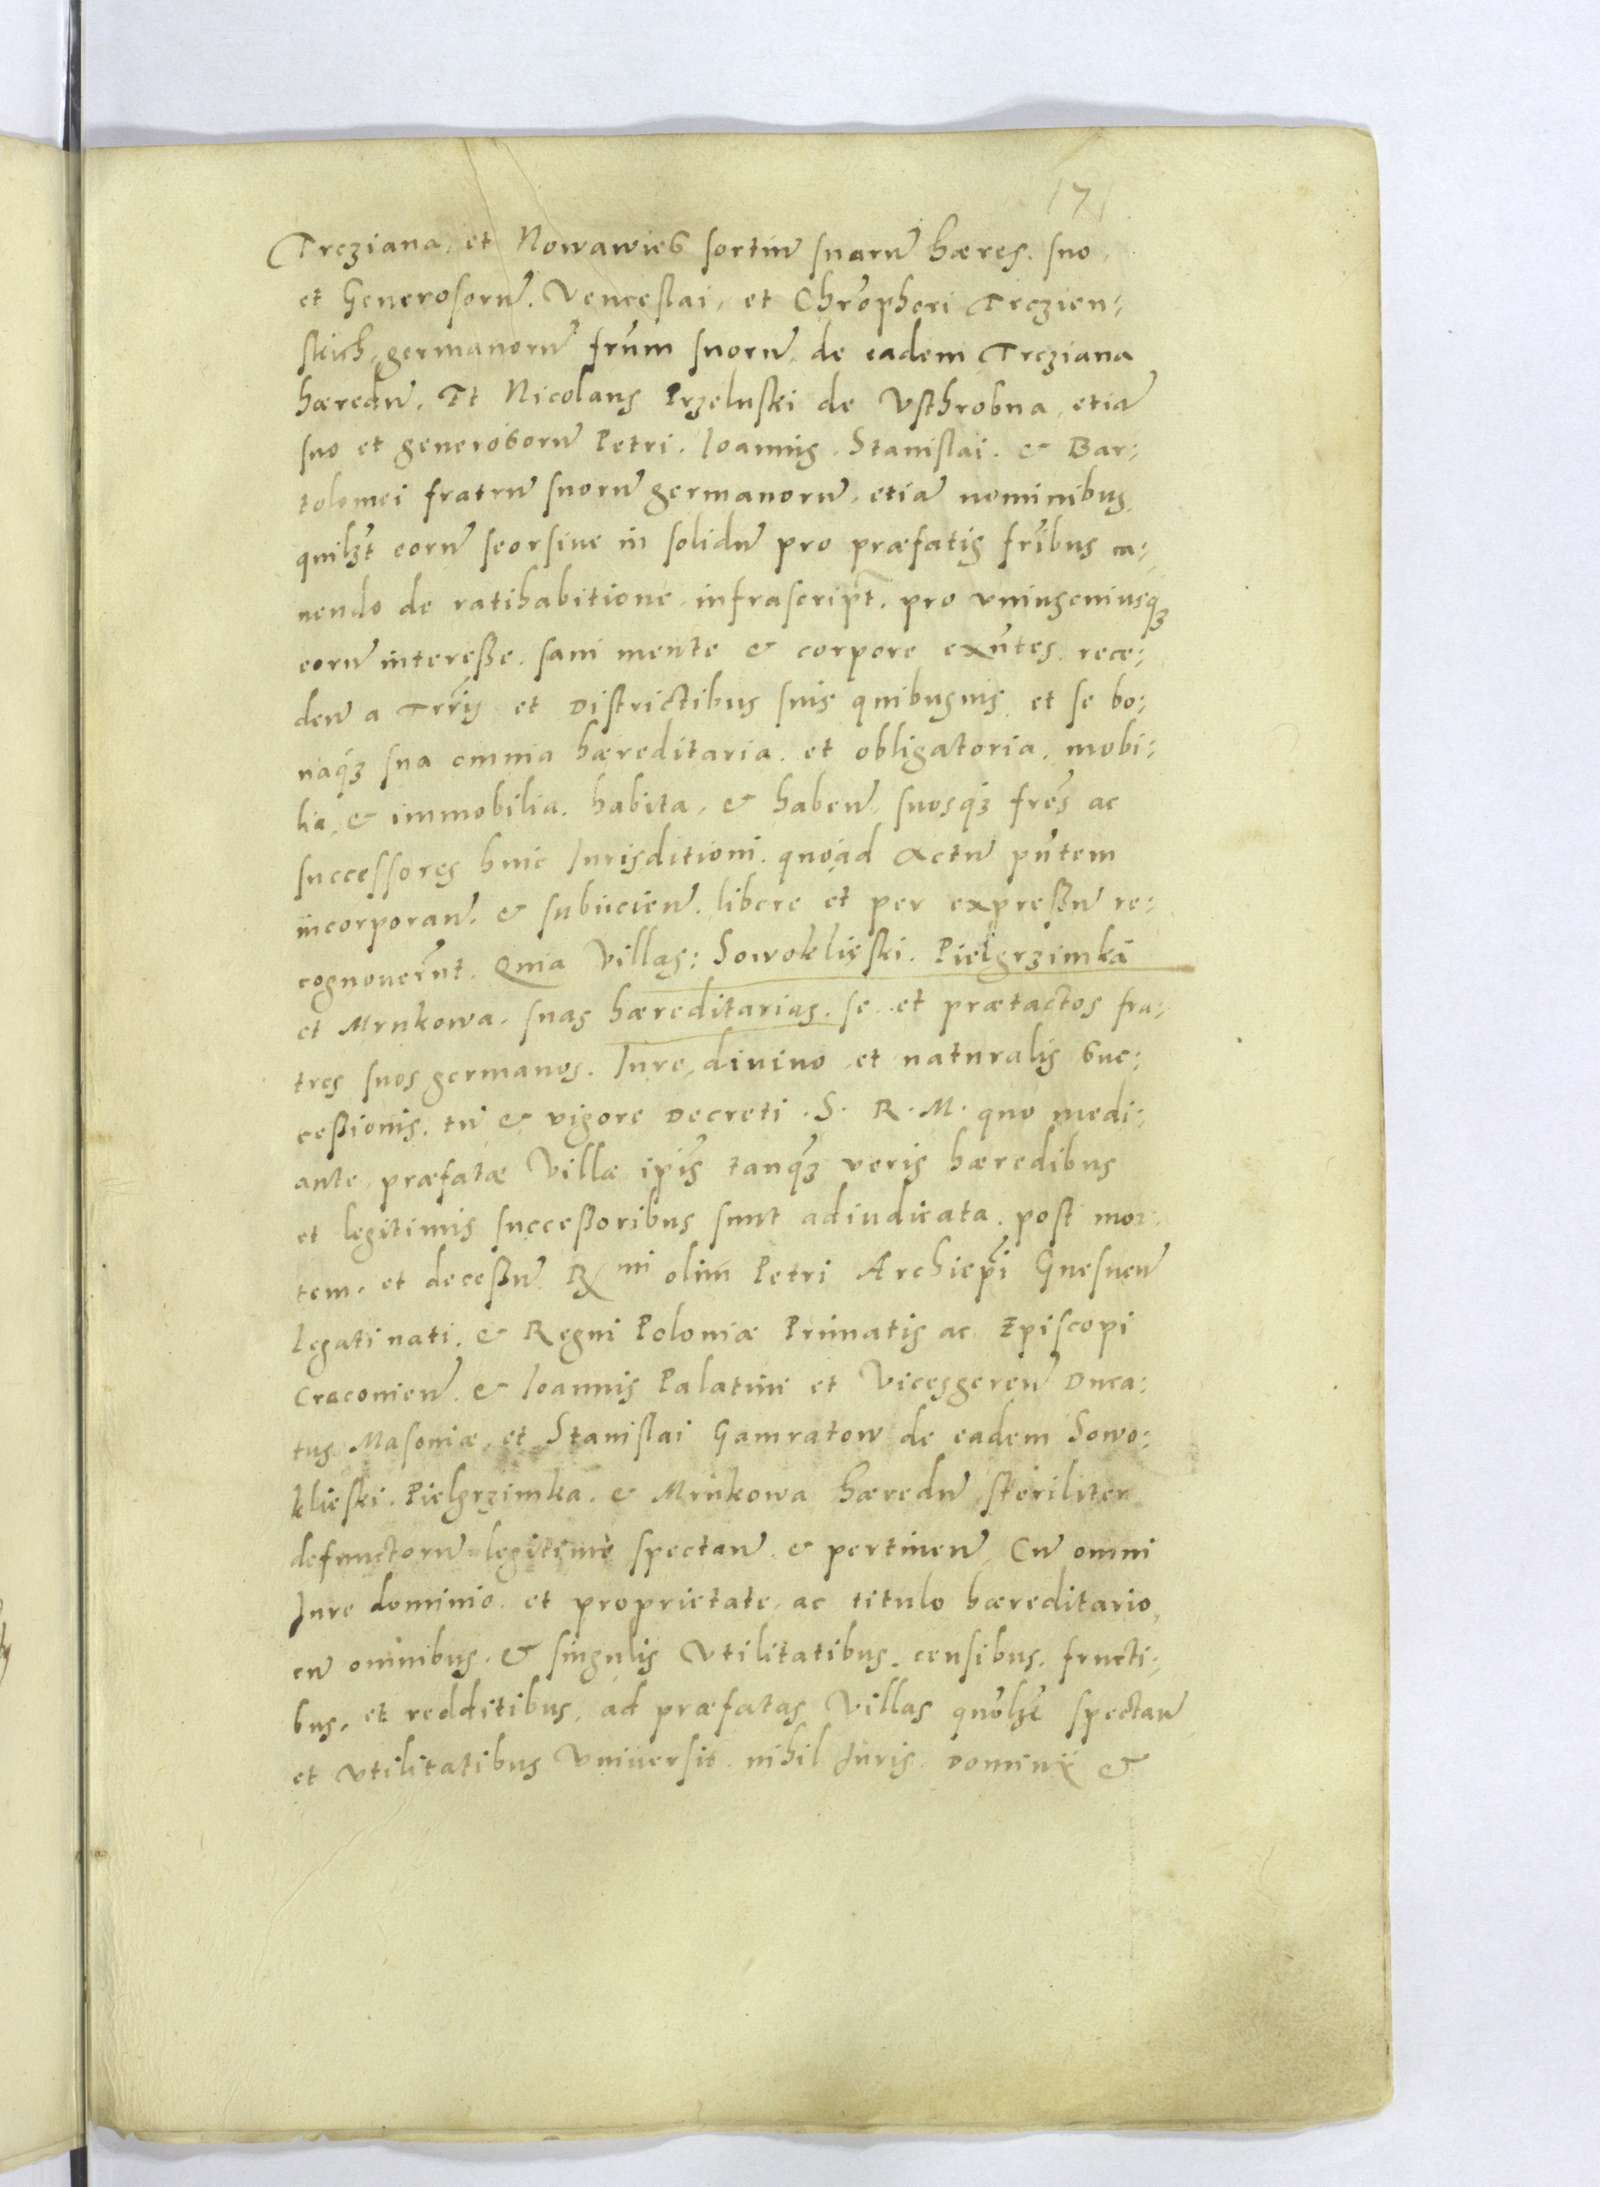 171
Trcziana, et Nowawies sortiū suarū hæres, suo
et Generosorū. Venceslai, et Chrōpheri Trczien:
skich, germanorū frūm suorū, de eadem Trcziana
hæredū. Et Nicolaus Przeluski de Vsthrobna, etiā
suo et generosorū Petri. Ioannis. Stanislai. & Bar:
tolomei fratrū suorū germanorū, etiā nominibus,
quilꝫt eorū seorsiue in solidū pro præfatis frībus ca:
uendo de ratihabitione, infrascript̄. pro vniuscuiusqꝫ
eorū interesse. sani mente & corpore exn̄tes, rece:
den̄ a Trrīs et Districtibus suis quibusuis, et se bo:
naqꝫ sua omnia hæreditaria. et obligatoria. mobi:
lia, & immobilia. habita, & haben̄, suosqꝫ frēs ac
successores huic Iurisditioni. quoad Actū pn̄tem
incorporan̄. & subiicien̄. libere et per expressū re:
cognouerūnt. Quia Villas: Sowoklieski. Pielgrzimka
et Mrukowa. suas hæreditarias. se, et prætactos fra:
tres suos germanos. Iure, diuino, et naturalis suc:
cessionis. tū & vigore Decreti .S. R. M. quo medi:
ante, præfatæ Villæ ip̄is tanqꝫ veris hæredibus
et legitimis successoribus sunt adiudicata. post mor:
tem. et decessū Rmi olim Petri Archiepī Gnesnen̄
legati nati. & Regni Poloniæ Primatis ac Episcopi
Cracouien̄. & Ioannis Palatini et Vicesgeren̄ Duca:
tus Masouiæ, et Stanislai Gamratow de eadem Sowo:
klieski. Pielgrzimka. & Mrukowa hæredū, steriliter
defunctorū legitime spectan̄. & pertinen̄, Cū omni
Iure dominio. et proprietate, ac titulo hæreditario,
cū omnibus. & singulis Vtilitatibus. censibus. fructi:
bus. et redditibus, ad præfatas Villas quōlꝫt spectan̄
et vtilitatibus Vniuersis. nihil Iuris. Dominii &